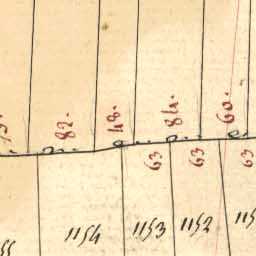 82.
48.
84.
60.
63
63
63
1154
1153
1152